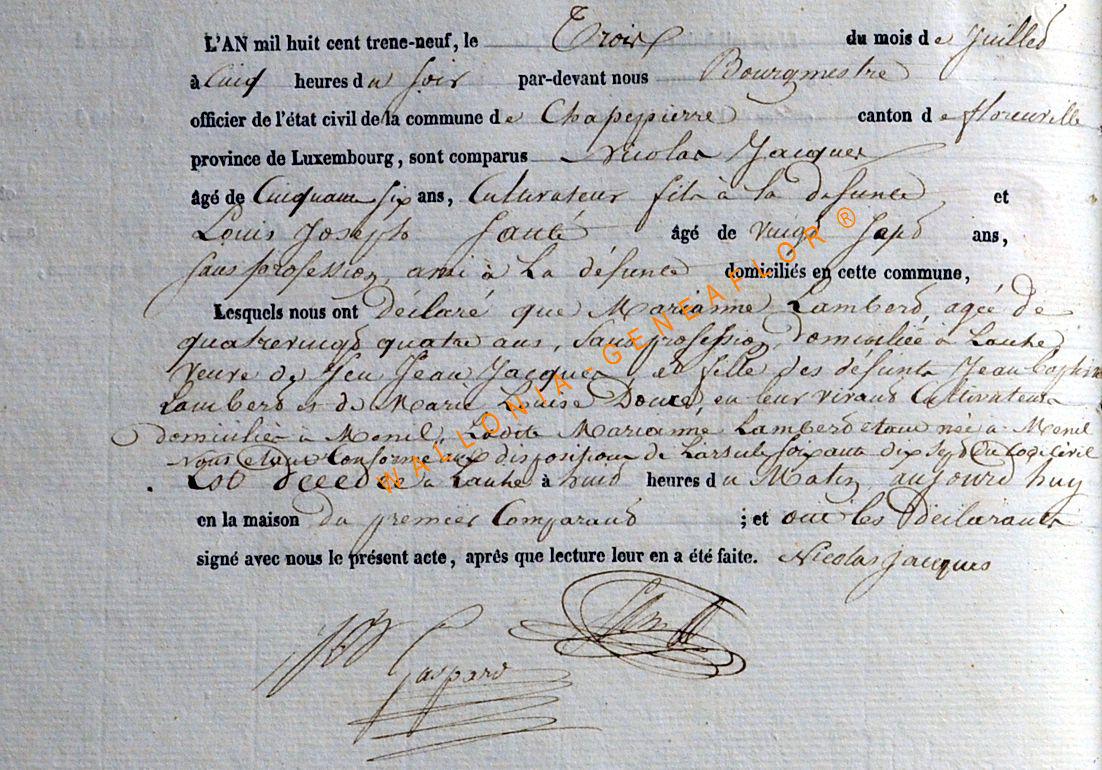 L'AN mil huit cent trene-neuf, le Trois du mois de Juillet
à Cinq heures du soir par-devant nous Bourgmestre
officier de l'état civil de la commune de Chapepierre canton de florenville
province de Luxembourg, sont comparus Nicolas Jacques
âgé de Cinquante six ans, Cultivateur fils à la défunte et
Louis Joseph âgé de vingt sept ans,
sans profession, ami à La défunte domiciliés en cette commune,
Lesquels nous ont déclaré que Marianne Lambert, agée de
quatrevingt quatre ans, sans profession, domiciliée à
veuve de feu Jean Jacques, et fille des défunts Jean baptiste
Lambert et de Marie Louise en leur vivant Cultivateurs
domiciliés à Menil, Ladite Marianne Lambert étant née à Menil
Nous étant Conformé aux dispositions de L'article soixante dix sept du Code Civil
Est décédée à à huit heures du Matin, aujourd'huy
en la maison du premier Comparant ; et ont les Déclarants
signé avec nous le présent acte, après que lecture leur en a été faite. Nicolas Jacques
Gaspard
WALLONIA-GENEAFLOR ®